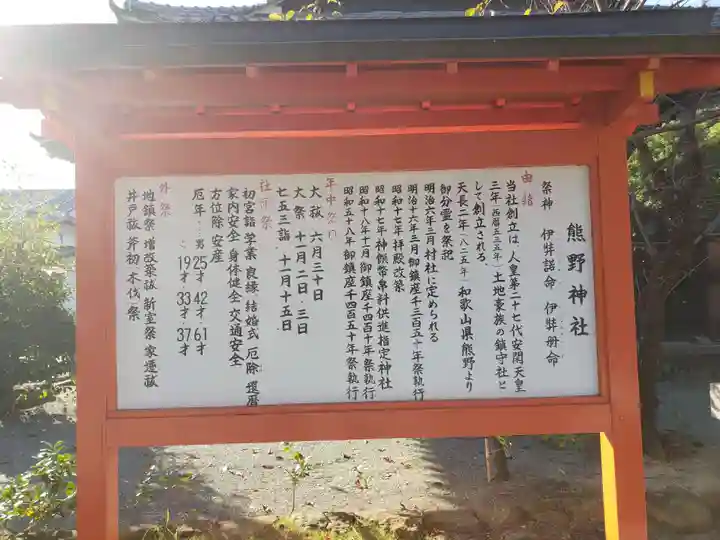 熊野神社
祭神　伊弉諾命　伊弉册命
由緒
当社創立は、人皇第二十七代安閑天皇
三年（西暦五三五年）土地豪族の鎮守社と
して創立される
天長二年（八二五年）和歌山県熊野より
御分霊を祭祀
明治六年三月村社に定められる
明治十六年三月御鎮座千三百五十年祭執行
昭和十七年拝殿改築
昭和十七年神饌幣帛料供進指定神社
昭和十八年十月御鎮座千四百十年祭執行
昭和五十八年御鎮座千四百五十年祭執行
年中祭日
大祓　六月三十日
大祭　十一月二日・三日
七五三詣　十一月十五日
社頭祭
初宮詣　学業　良縁　結婚式　厄除　還暦
家内安全　身体健全　交通安全
方位除　安産
厄年…男25才　42才　61才
19才　33才　37才
外祭
地鎮祭　増改築祓　新室祭　家遷祓
井戸祓　斧初　木伐祭